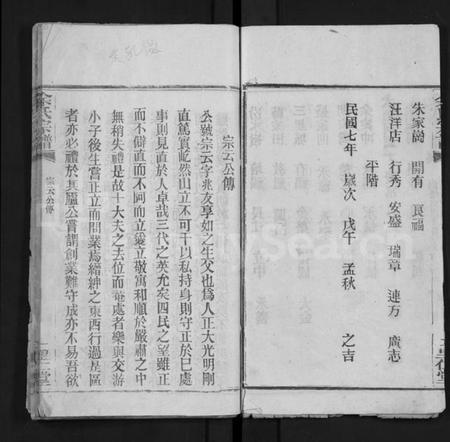 朱家崗 開有 良福
汪洋店 行秀 安盛 瑞章 連方 廣志
平階
民國七年 歲次 戊午 孟秋 之吉
宗云公傳
公號宗云字兆友孚如之生父也為人正大光明剛
直篤實屹然山立不可干以私持身則守正於巳處
事則見直於人卓哉三代之英允矣四民之望雖正
而不僻直而不阿而立愛立敬寓和順於嚴肅之中
無稍失禮是故士大夫之去位而
處者樂與交游
小子後生嘗正立而問業焉縉紳之東西行過是區
者亦必禮於其廬公嘗謂創業難守成亦不易吾欲
余氏宗譜
宗云公傳